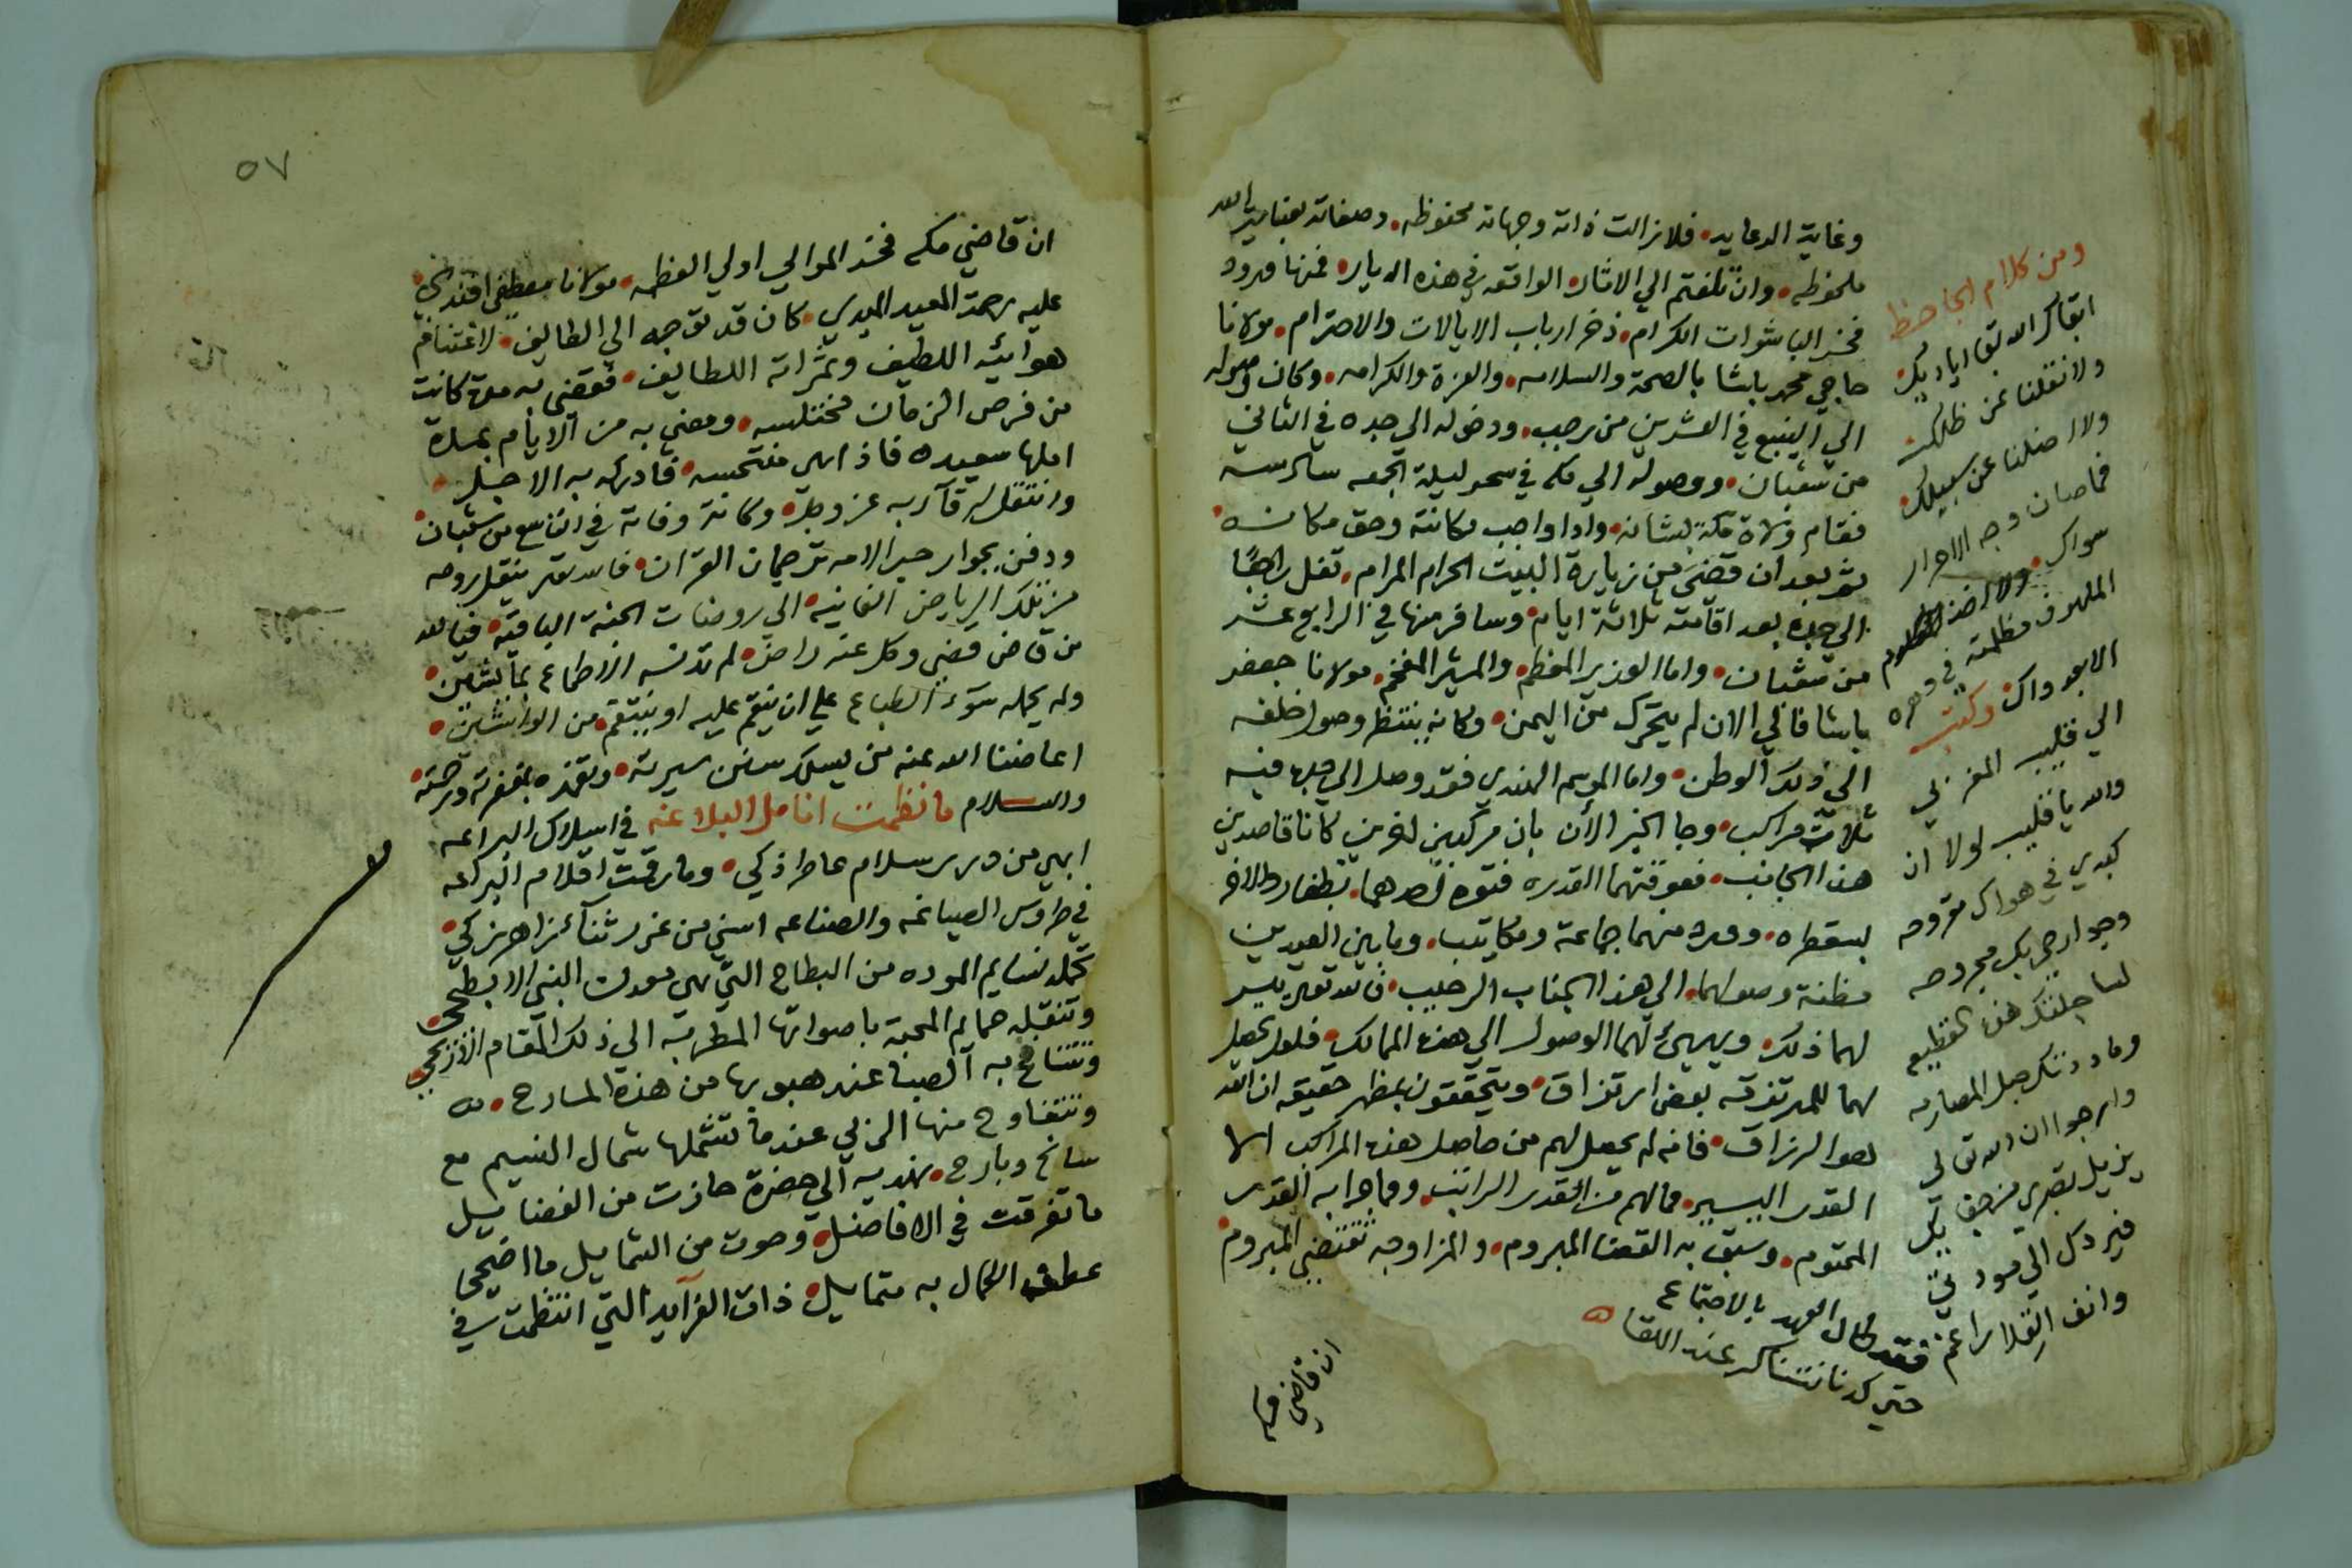 وغاية الدعايه. فلا زالت ذاته وجهاته محفوظه. وصفاته بعناية الله
ملحوظه. وان تلفتم الي الاثار الواقعه في هذه الديار. فمنها ورود
فخر الباشوات الكرام. ذخر ارباب الايالات والاحترام. مولانا
حاجي محمد باشا بالصحة والسلامه. والعزة والكرامه. وكان وصوله
الي الينبع في العشرين من رجب. ودخوله الي جده في الثاني
من شعبان. ووصوله الي مكه في سحر ليلة الجمعه سادسه
فقام ولاة مكة بشانه. وادا واجب مكانته وحق مكانه.
ثم بعد ان قضي من زيارة البيت الحرام المرام. قفل راجعًا
الي جده بعد اقامته ثلاثة ايام. وسافر منها في الرابع عشر
من شعبان. واما الوزير المعظم. والمشير المفخم. مولانا جعفر
باشا فالي الان لم يتحرك من اليمن. وكانه ينتظر وصول خلفه
الي ذلك الوطن. واما الموسم الهندي فقد وصل الي جده فيه
ثلاث مراكب. وجا الخبر الأن بان مركبين اخرين كانا قاصدين
هذا الجانب. فعوقتهما القدره فتوه احدهما بظفار والاخر
بسقطره. وورد منهما جماعة ومكاتيب. وما بين العيدين
مظنة وصولهما. الي هذا الجناب الرحيب. فالله تعالي ييسر
لهما ذلك. ويهيئ لهما الوصول الي هذه الممالك. فلعل يحصل
بهما للمرتزقه بعض ارتزاق. ويتحققون بمظهر حقيقه ان الله
هو الرزاق. فانه لم يحصل لهم من حاصل هذه المراكب الا
القدر اليسير. فما لهم من القدر الراتب. وما جرا به القدر
المحتوم. وسبق به القضا المبروم. والمزاوجه تقتضي المبروم.
ان قاضي مكه
ومن كلام الجاحظ
ابقاك الله بقا اياديك.
ولا نقلنا عن ظلك
ولا اضلنا عن سبيلك.
فما صان وجه الاحرار
سواك.
الملهوف مظلمته في دهره
الا جدواك. وكتب
الي قليب المغربي
والله يا قليب لولا ان
كبدي في هواك مقروحه
وجوارحي بك مجروحه
لساجلتك هذه القطيعه
وماددتك حبل المصارمه
وارجوا ان الله تعالي
يزيل بصري من جفائك
فيردك الي مودتي
وانف القلا راغم
فقد طال العهد بالاجتماع
حتي كدنا نتناكر عند اللقا
٥٧
ان قاضي مكه فخر الموالي اولي العظمه. مولانا مصطفي افندي.
عليه رحمة المعيد المبدي. كان قد توجه الي الطايف. لاغتنام
هوائيه اللطيف وثمراته اللطايف. فقضي به مدة كانت
من فرص الزمان مختلسه. ومضي به من الايام بمدة
املها سعيده فاذا هي منتحسه. فادركه به الاجل.
وانتقل لرقا ربه عز وجل. وكانت وفاته في التاسع من شعبان.
ودفن بجوار حبر الامه ترجمان القران. فالله ينقل روحه
من تلك الرياض الفانيه. الي روضات الجنة الباقيه. فيالله
من قاض قضي وكل عنه راض. لم تدنسه الاطماع بما يشين.
ولم يحمله سوء الطباع علي ان ينقم عليه او ينتقم من الواشين.
اعاضنا الله عنه من يسلك سنن سيرته. وتغمده بمغفرته ورحمته.
والسلام ما نظمت انامل البلاغه في اسلاك البراعه
ابهي من درر سلام عاطر ذكي. وما رقمت اقلام البراعه
في طروس الصياغه والصناعه اسني من غرر ثناء زاهر زكي.
تحمله نسايم الموده من البطاح التي هي مهد النبي الابطحي.
وتنقله حمايم المحبة باصواتها المطربة الي ذلك المقام
وتتنافح به الصبا عند هبوبها من هذه المسارح.
وتتفاوح منها الربي عندما تشملها شمال النسيم مع
سانح وبارح. نهديه الي حضرة حازت من الفضايل
ما تفرقت في الافاضل. وحوت من الشمايل ما اضحي
عطف الكمال به متمايل. ذات الفرايد التي انتظمت في